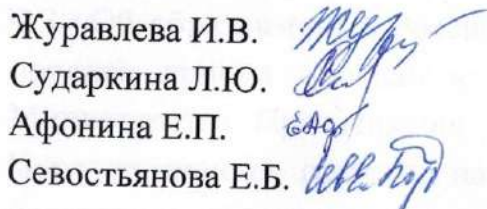 Журавлева И.В.
Сударкина Л.Ю.
Афонина Е.П.
Севостьянова Е.Б.